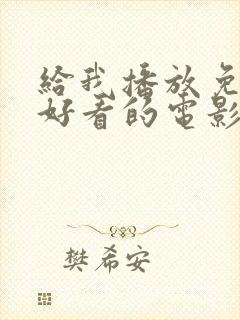 給我播放免
好看的電影
樊希安